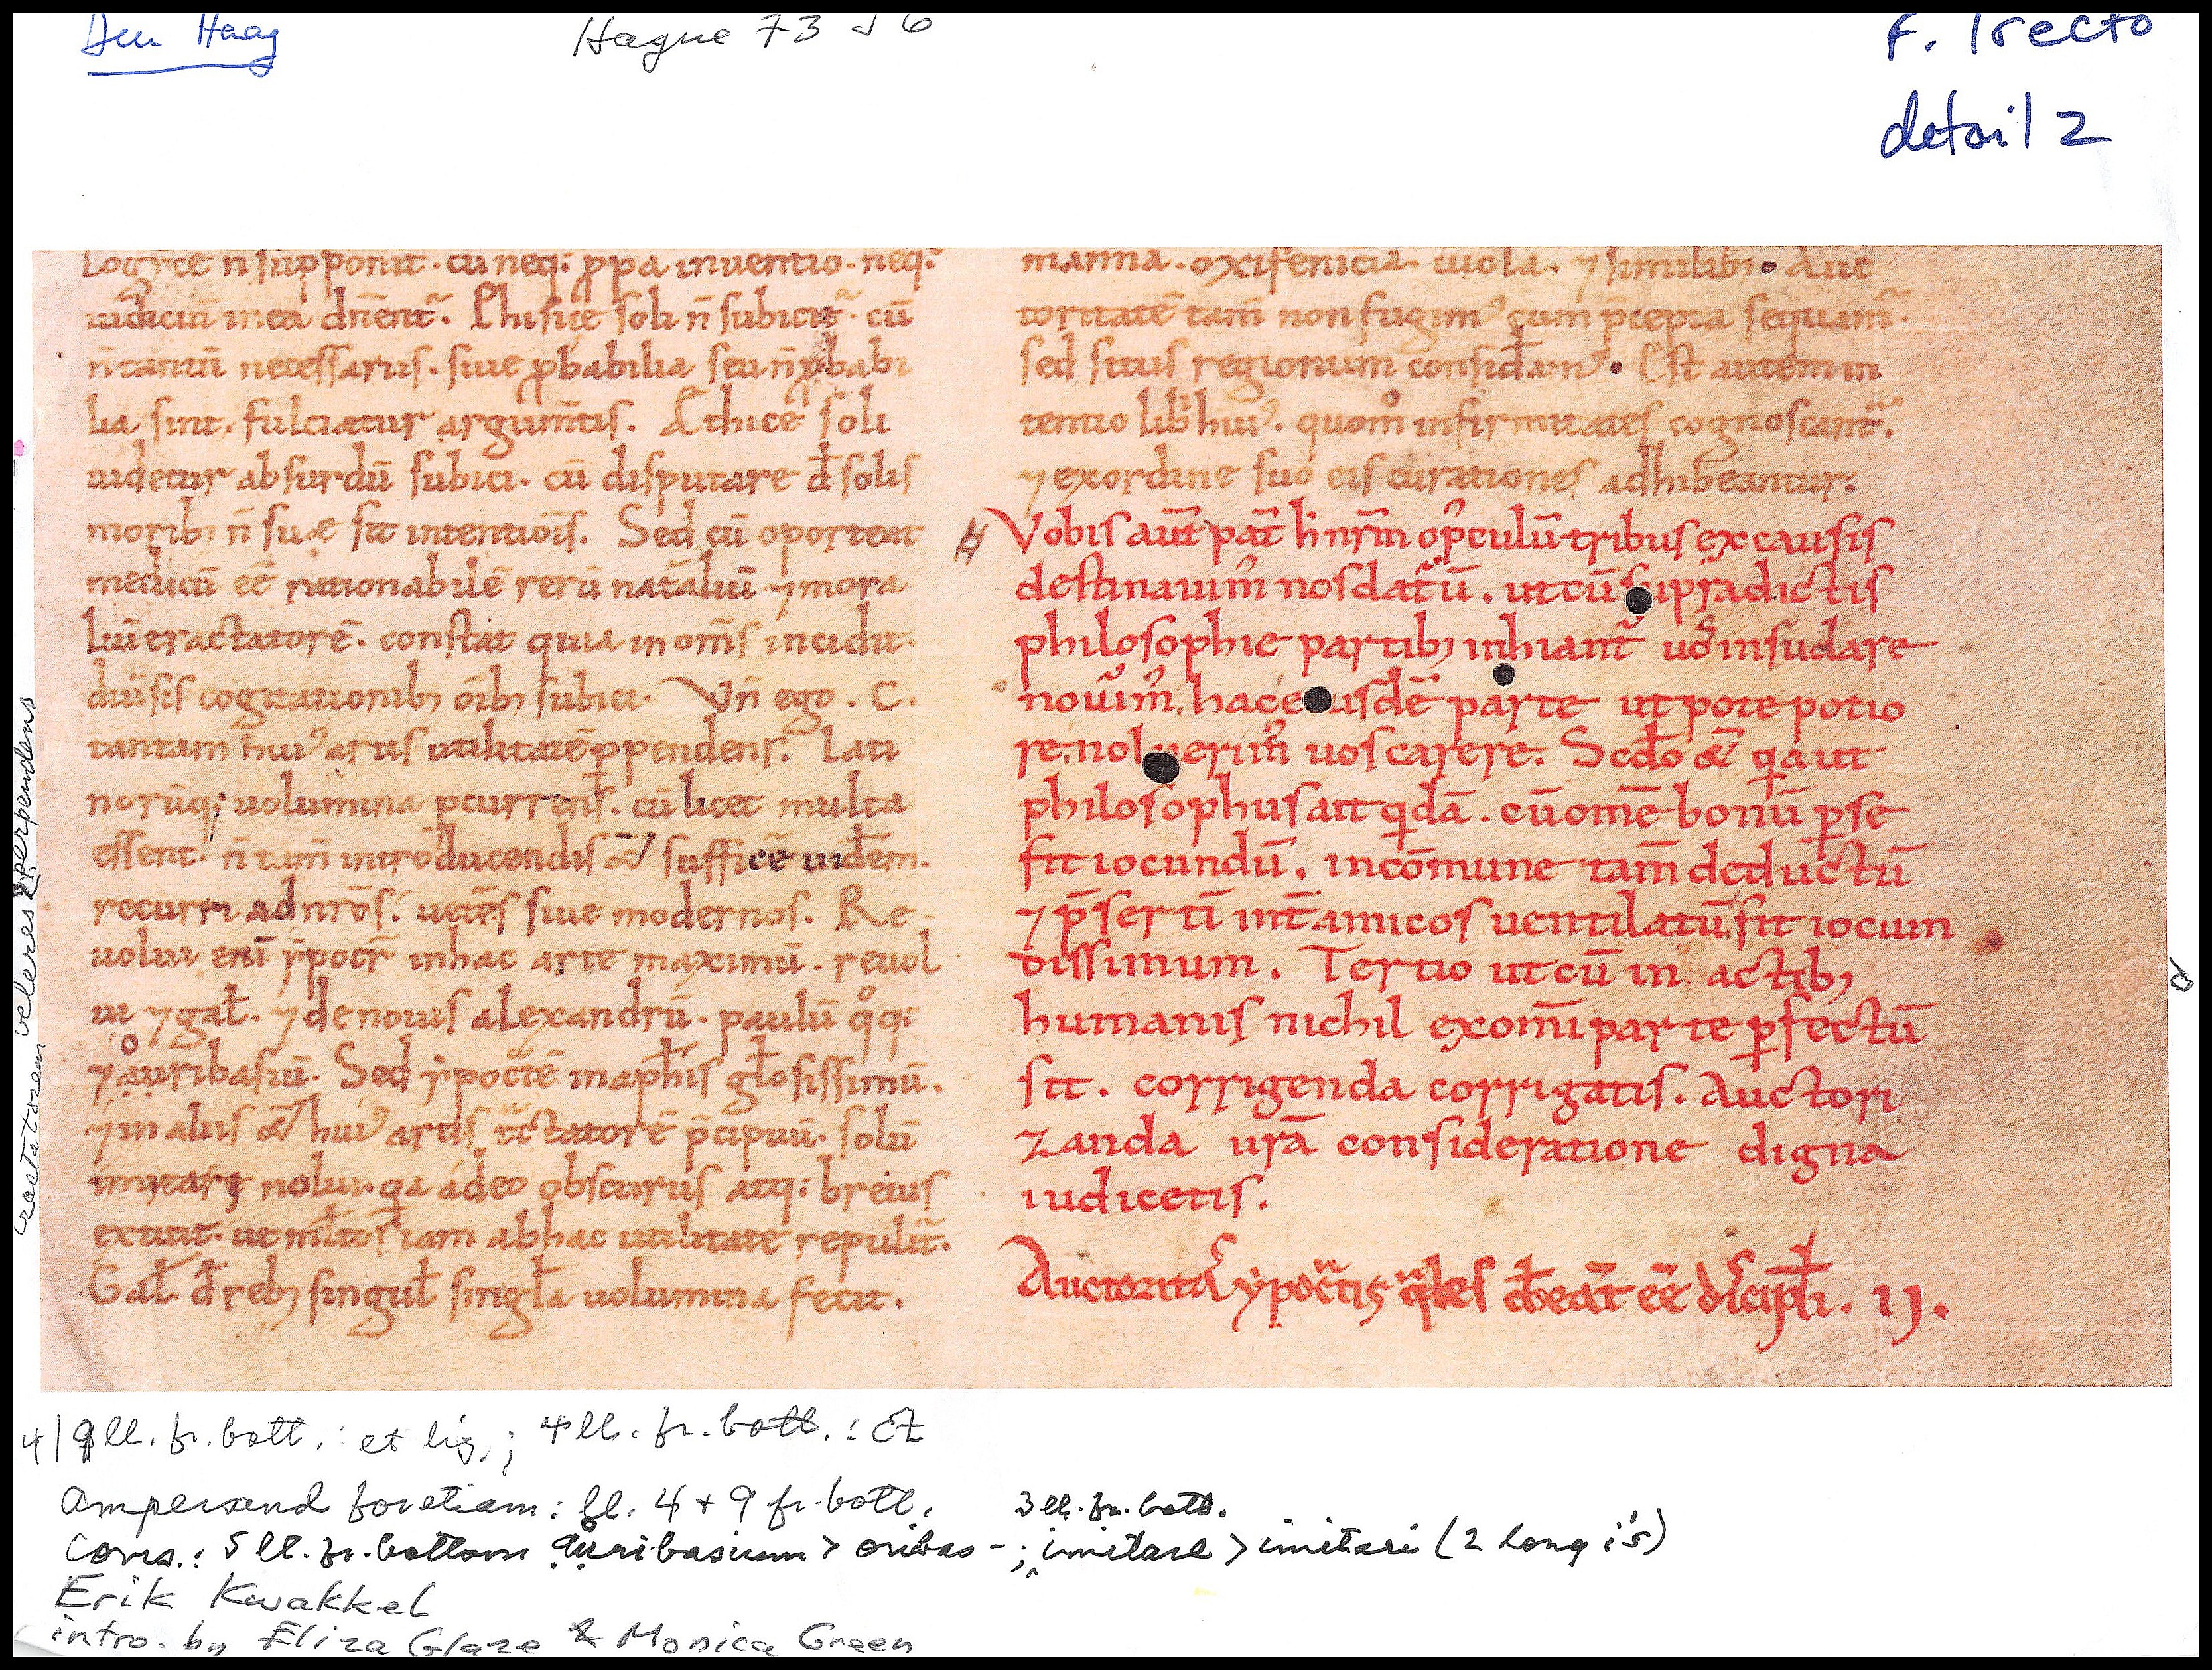 Den Haag
Hague 73 J 6
F. 1 recto
detail 2
Logice n̄ supponit. cū neq; ꝓpa inuentio. neq;
iudiciū in ea dn̄ent᷑. Phisice soli n̄ subicit᷑. cū
n̄ tantū necessariis. siue ꝓbabilia seu n̄ ꝓbabi
lia sint. fulciatur argum̄tis. Ethice soli
uidetur absurdū subici. cū disputare đ solis
morib; n̄ suæ sit intentiōis. Sed cū oporteat
medicū eē rationabilē rerū nat̄aliū ⁊ mora
liū tractatorē. constat quia in om̄s incidit.
diu̅sis cogitationib; oīb; subici. Vn̄ ego . C.
tantam hui᷒ artis utilitatē ꝑpendens. Lati
norūq; uolumina ꝑcurrens. cū licet multa
essent. n̄ tam̄ introducendis &̄ sufficē uidēm.
recurri ad nr̄os. uetēs siue modernos. Re
uolui enī ẏpocr̄ in hac arte maximū. reuol
ui ⁊ gał. ⁊ de nouis alexandrū. paulū qͦq;
⁊ auribasiū. Sed ẏpoc̄tē in aph̄is gło sissimū.
⁊ in aliis &̄ hui᷒ artis tc̄tatorē p̄cipuū. solū
imitare nolui. qa adeo obscurus atq; breuis
extitit. ut ml̄tos iam ab hac utilitate repulit᷑.
Gał. đ reb; singuł singła uolumina fecit.
manna. oxifenicia. uiola. ⁊ similib;. Auc
toritatē tam̄ non fugim᷒ cum p̄cepta sequam᷑.
sed situs regionum consid̄am᷒. Est autem in
tentio lib̄ hui᷒. quomͦ infirmitates cognoscant᷑.
⁊ ex ordine suo eis curationes adhibeantur.
Vobis aut̄ pat̄ h̄ nr̄m op̄culū tribus ex causis
destinauim᷒ nos datūɼ. ut cū supradictis
philosophie partib; inhiant᷑ uos insudare
nouim᷒. hac eiusdē parte ut pote potio
re. noluerim᷒ uos carere. Scdo &̄ qa ut
philosophus ait qdā. cū ome bonū ꝑ se
sit iocundū. in cōmune tam̄ deductū
⁊ p̄sertī int̄ amicos uentilatū fit iocun
dissimum. Tertio ut cū in actib;
humanis nichil ex om̄i parte ꝑfectū
sit. corrigenda corrigatis. Auctori
zanda ur̄a consideratione digna
iudicetis.
Auctoritas ẏpoc̄tis qles debeat eē discipłi. II.
tractatorem veteres perpendens
4/9 ll. fr. bott.: et lig.; 4 ll. fr. bott.:
Ampersand for etiam: ll. 4 + 9 fr. bott.
3 ll. fr. bott.
Corrs.: 5 ll. fr. bottom auribasium > oribas-; imitare > imitari (2 long i's)
Erik Kwakkel
intro. by Eliza Glaze & Monica Green